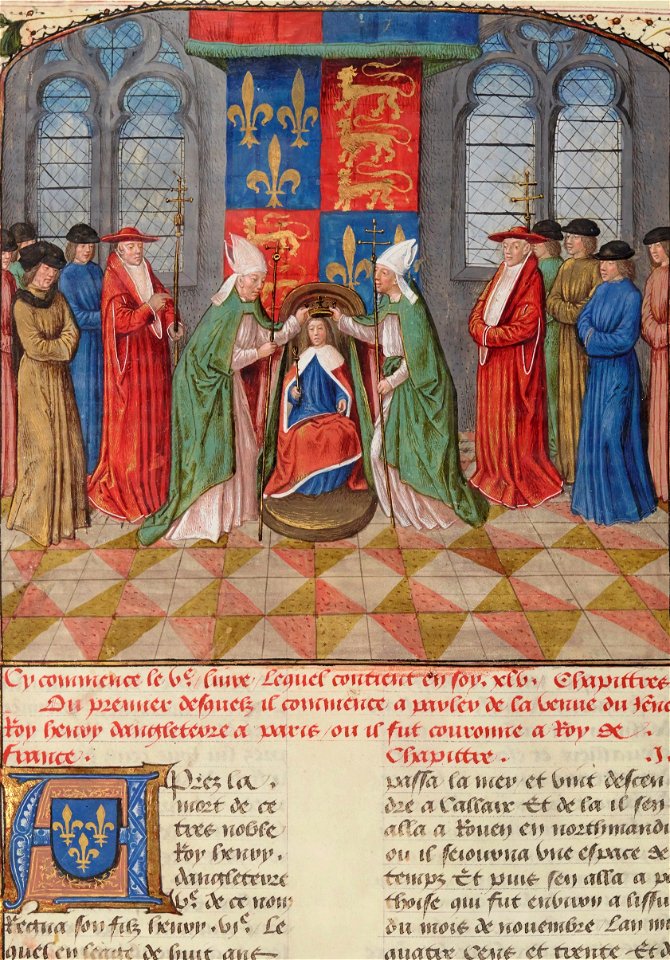 Cy commence le Ve. livre, Lequel contient en soy. xlv. Chapittres
Ou premier desquelz il commence a parler de la venue du Jeune
Roy henry dangleterre a paris ou il fut couronne a Roy de
France. Chapittre.
Aprez la
mort de ce
tres noble
Roy henry.
dangleterre
Ve. de ce nom
Regna son filz henry. VIe. Le
quel en leage de huit ans
passa la mer et vint descen
dre a Callaix Et de la il sen
alla a Rouen en northmandi
ou il seiourna vne espace de
temps Et puis sen alla a po
thoise qui fut environ a lissu
du mois de novembre Lan m
quatre Cens et trente Et d